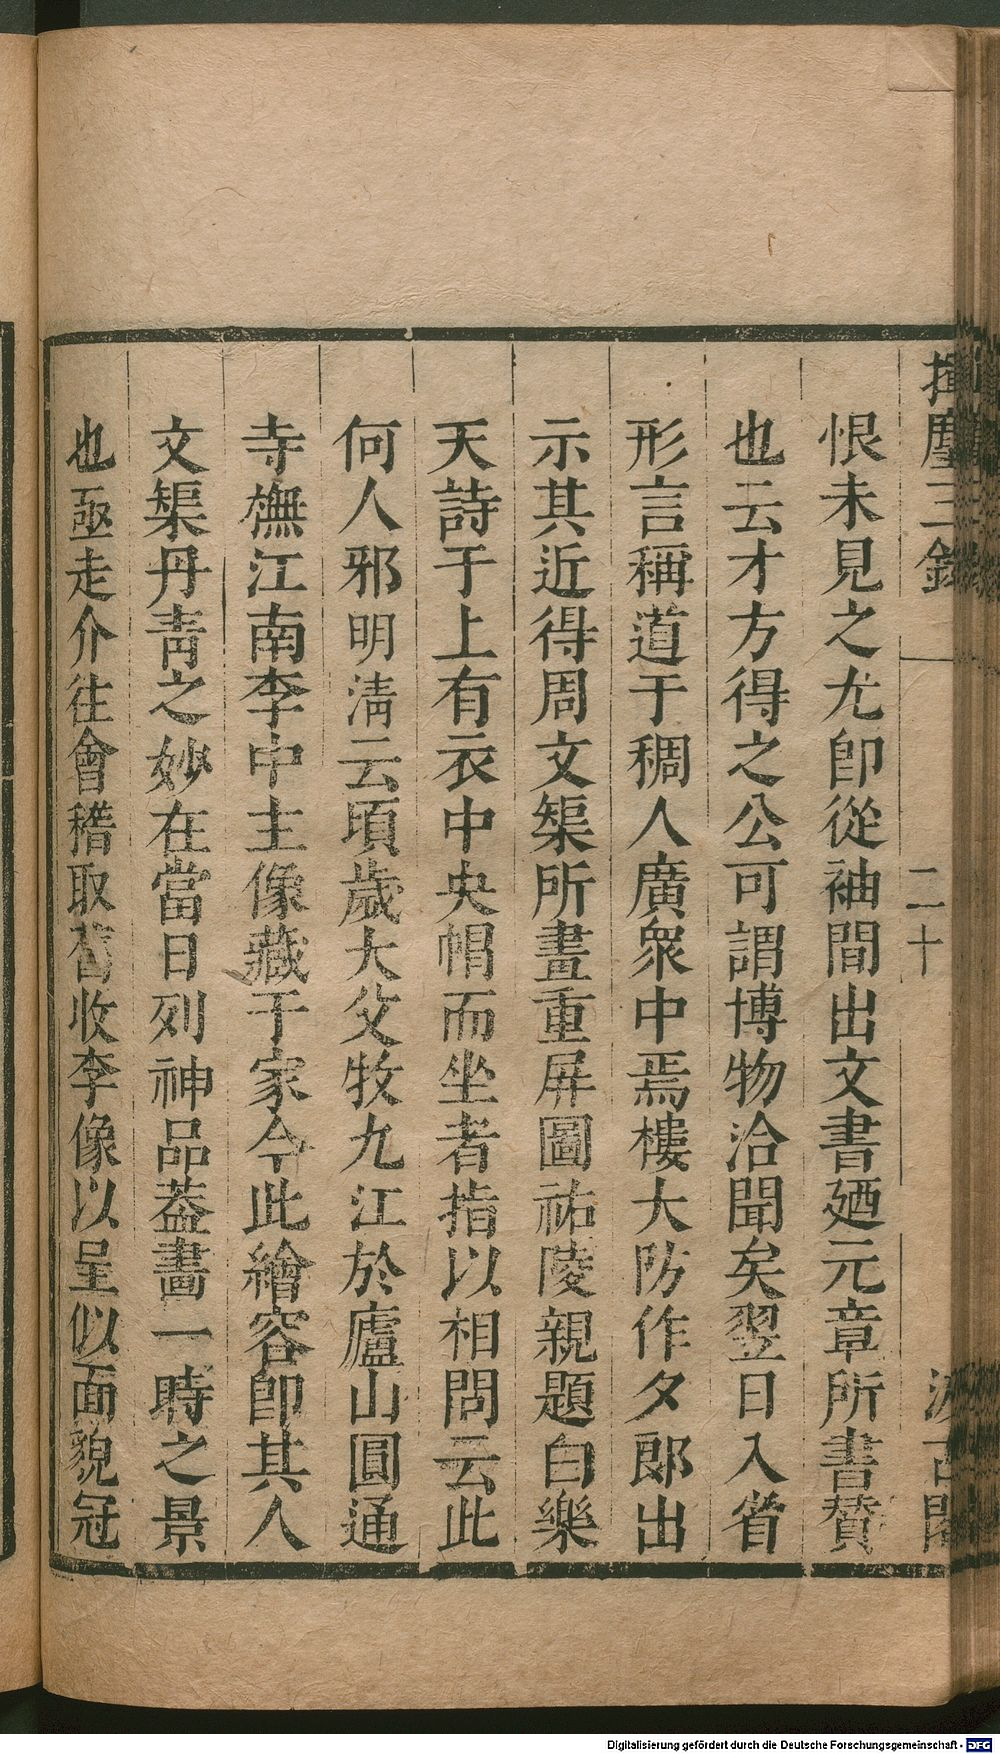 揮麈三錄
二十
汲古閣
恨未見之尤卽從袖間出文書廼元章所書贊
也云才方得之公可謂博物洽聞矣翌日入省
形言稱道于稠人廣衆中焉樓大防作夕郎出
示其近得周文榘所畫重屏圖祐陵親題白樂
天詩于上有衣中央帽而坐者指以相問云此
何人邪明淸云頃歲大父牧九江於廬山圓通
寺橅江南李中主像藏于家今此繪容卽其人
文榘丹靑之妙在當日列神品葢畫一時之景
也亟走介往會稽取舊收李像以呈似面貌冠
Digitalisierung gefördert durch die Deutsche Forschungsgemeinschaft - DFG